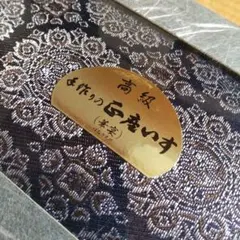 高級
手作りの正座いす